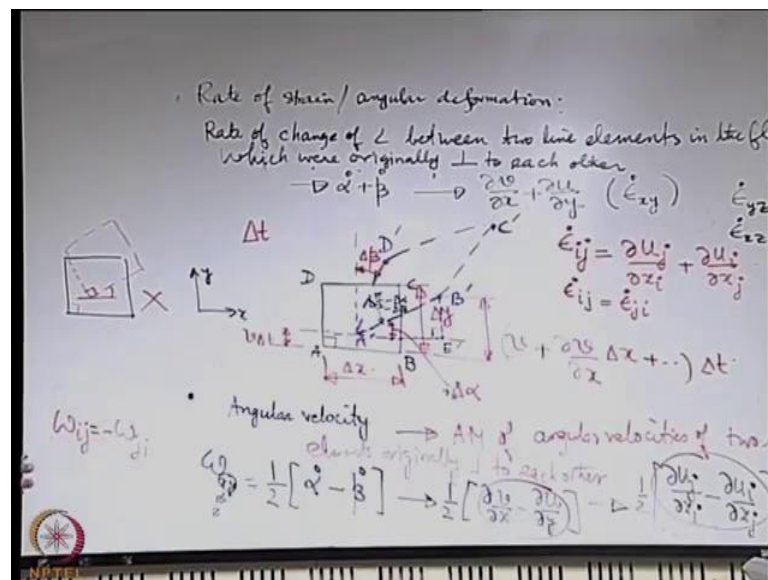 Rate of strain/angular deformation:
Rate of change of ∠ between two line elements in the fl
which were originally ⊥ to each other
→ α̇ + β̇ → ∂v/∂x + ∂u/∂y (ε̇xy)
ε̇yz
ε̇xz
Δt
ε̇ij = ∂uj/∂xi + ∂ui/∂xj
ε̇ij = ε̇ji
y
x
Δβ
D'
C'
D
C
B'
A'
Δy
vΔt
A
B
E
E'
Δx
Δα
(v + ∂v/∂x Δx + ...) Δt
• Angular velocity → AM of angular velocities of two
elements originally ⊥ to each other
ωij = -ωji
= 1/2 [α̇ - β̇] → 1/2 [∂v/∂x - ∂u/∂y] → 1/2 [∂uj/∂xi - ∂ui/∂xj]
NPTEL